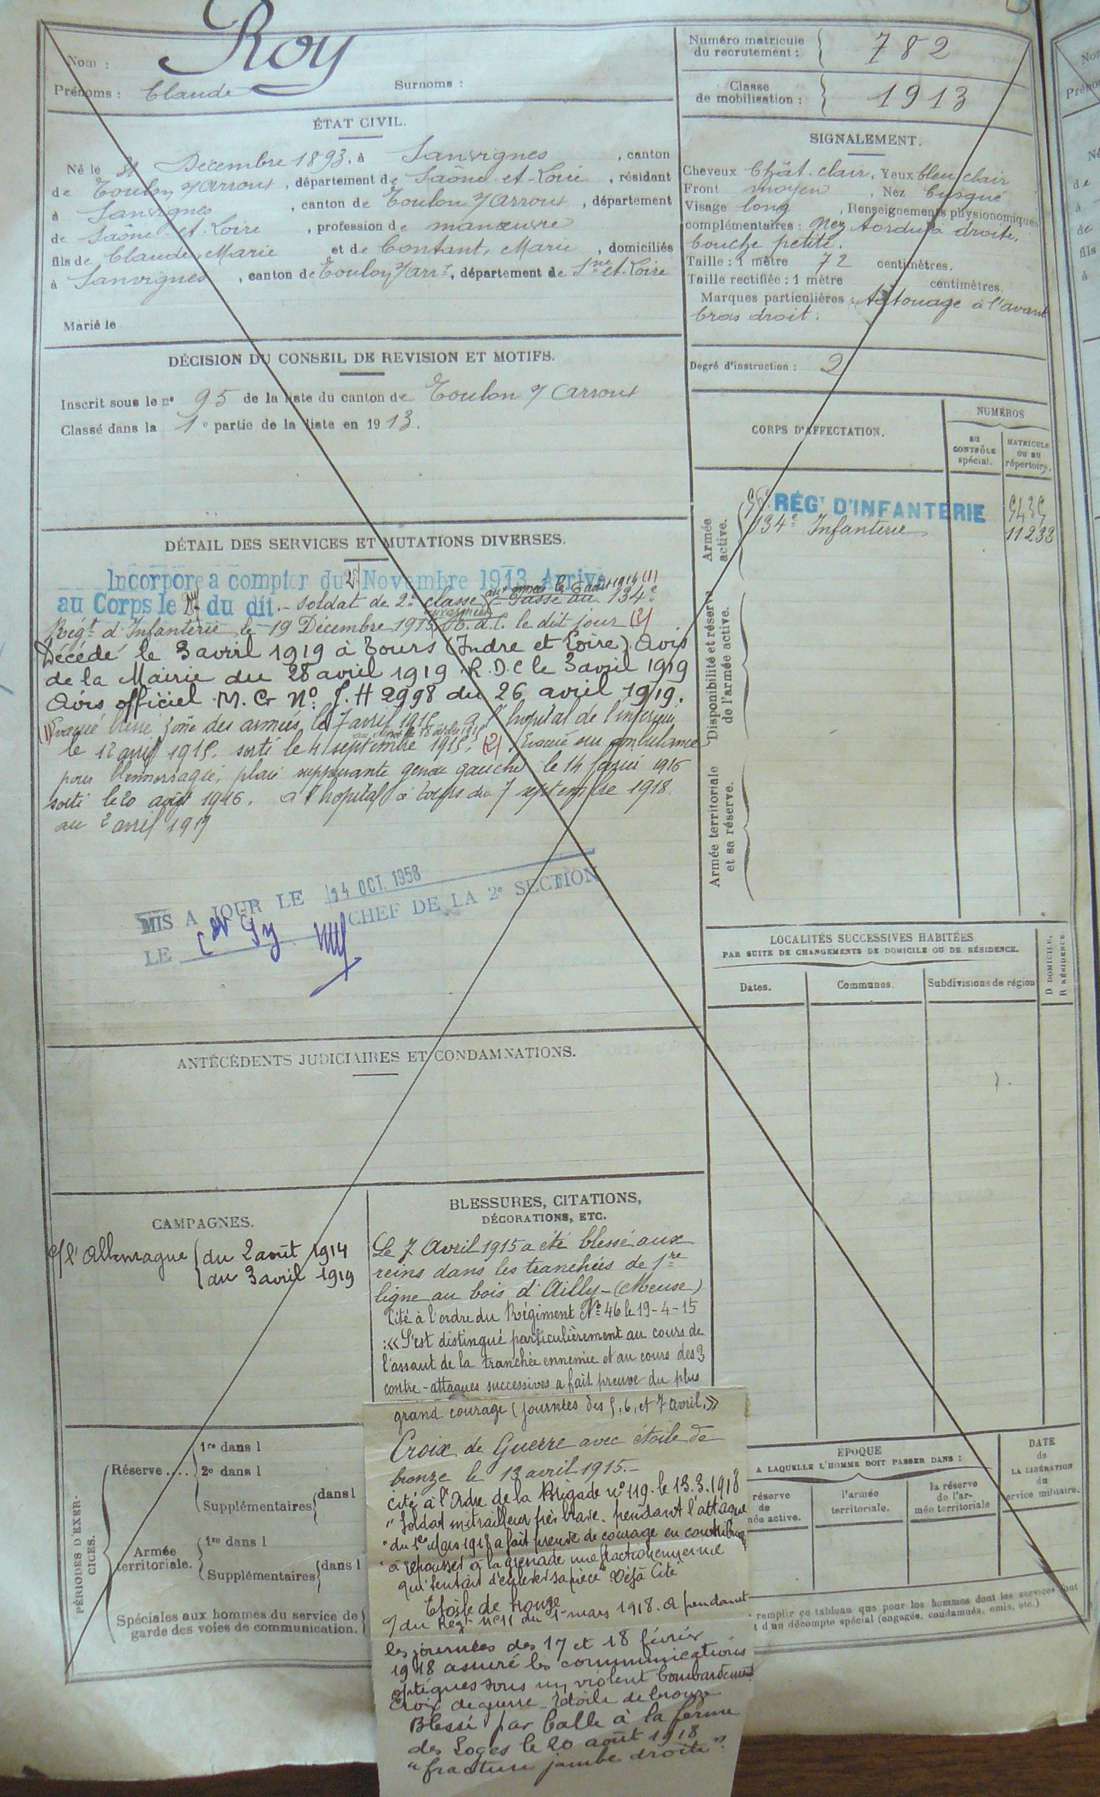 Nom : Roy
Prénoms : Claude Surnoms :
Numéro matricule du recrutement : 782
Classe de mobilisation : 1913
ÉTAT CIVIL.
Né le 31 Décembre 1893, à Sanvignes, canton
de Toulon s/ Arroux, département de Saône et-Loire, résidant
à Sanvignes, canton de Toulon s/ Arroux, département
de Saône et-Loire, profession de manœuvre
fils de Claude Marie et de Contant, Marie, domiciliés
à Sanvignes, canton de Toulon s/ Arr.x, département de S.ne et-Loire
Marié le
SIGNALEMENT.
Cheveux Chât. clair, Yeux bleu clair
Front moyen, Nez busqué
Visage long, Renseignements physionomiques
complémentaires : Nez tordu à droite,
bouche petite.
Taille : 1 mètre 72 centimètres.
Taille rectifiée : 1 mètre centimètres.
Marques particulières : Tatouage à l'avant
bras droit.
Degré d'instruction : 2
DÉCISION DU CONSEIL DE REVISION ET MOTIFS.
Inscrit sous le n° 95 de la liste du canton de Toulon s/ Arroux
Classé dans la 1e partie de la liste en 1913.
CORPS D'AFFECTATION.
NUMÉROS
AU CONTRÔLE spécial.
MATRICULE OU AU répertoire.
Armée active.
RÉGt D'INFANTERIE 5435
134e Infanterie 11232
Disponibilité et réserve de l'armée active.
Armée territoriale et sa réserve.
DÉTAIL DES SERVICES ET MUTATIONS DIVERSES.
Incorporé à compter du Novembre 1913. Arrivé
au Corps le du dit. - soldat de 2e classe Passé au 134e
Régt d'Infanterie le 19 Décembre 1915 le dit jour (2)
Décédé le 3 avril 1919 à Tours (Indre et Loire). Avis
de la Mairie du 28 avril 1919. R.D.C le 3 avril 1919
Avis officiel M. G N° J. H 2998 du 26 avril 1919.
(1) Evacué blessé zône des armées le 7 avril 1915 à l'hopital de l'intérieur
le 12 avril 1915. sorti le 4 septembre 1915. (2) Evacué sur ambulance
pour plaie suppurante genou gauche le 14 1916
sorti le 20 août 1916. à l'hopital à Tours du 7 septembre 1918
au 2 avril 1919
MIS A JOUR LE 14 OCT. 1958
LE CHEF DE LA 2e SECTION
LOCALITÉS SUCCESSIVES HABITÉES
PAR SUITE DE CHANGEMENTS DE DOMICILE OU DE RÉSIDENCE.
Dates. Communes. Subdivisions de région
D DOMICILE, R RÉSIDENCE
ANTÉCÉDENTS JUDICIAIRES ET CONDAMNATIONS.
CAMPAGNES.
c/ l'Allemagne du 2 août 1914
du 3 avril 1919
BLESSURES, CITATIONS,
DÉCORATIONS, ETC.
Le 7 Avril 1915 a été blessé aux
reins dans les tranchées de 1re
ligne au bois d'Ailly - (Meuse)
Cité à l'ordre du Régiment N° 46 le 19-4-15
:« S'est distingué particulièrement au cours de
l'assaut de la tranchée ennemie et au cours des 3
contre-attaques successives a fait preuve du plus
grand courage (journées des 5, 6, et 7 avril.»
Croix de Guerre avec étoile de
bronze le 13 avril 1915. -
cité à l'Ordre de la Brigade n° 119. le 13.3.1918
" Soldat mitrailleur très brave. pendant l'attaque
" du 1er Mars 1918 a fait preuve de courage en contribuant
" à repousser à la grenade une fraction ennemie
qui tentait d'enlever sa pièce Déjà Cité
Etoile de bronze
du Régt n° 11 du 1er mars 1918. A pendant
les journées des 17 et 18 février
1918 assuré les communications
optiques sous un violent bombardement
Croix de guerre Etoile de bronze
Blessé par balle à la ferme
des Loges le 20 août 1918
" fracture jambe droite".
PÉRIODES D'EXERCICES.
Réserve....
1re dans l
2e dans l
Supplémentaires dans l
Armée territoriale.
1re dans l
Supplémentaires dans l
Spéciales aux hommes du service de
garde des voies de communication.
ÉPOQUE
A LAQUELLE L'HOMME DOIT PASSER DANS :
réserve de
l'armée territoriale.
la réserve de l'armée territoriale
DATE de LA LIBÉRATION du service militaire.
remplir ce tableau que pour les hommes dont les services font
d'un décompte spécial (engagés, condamnés, omis, etc.)